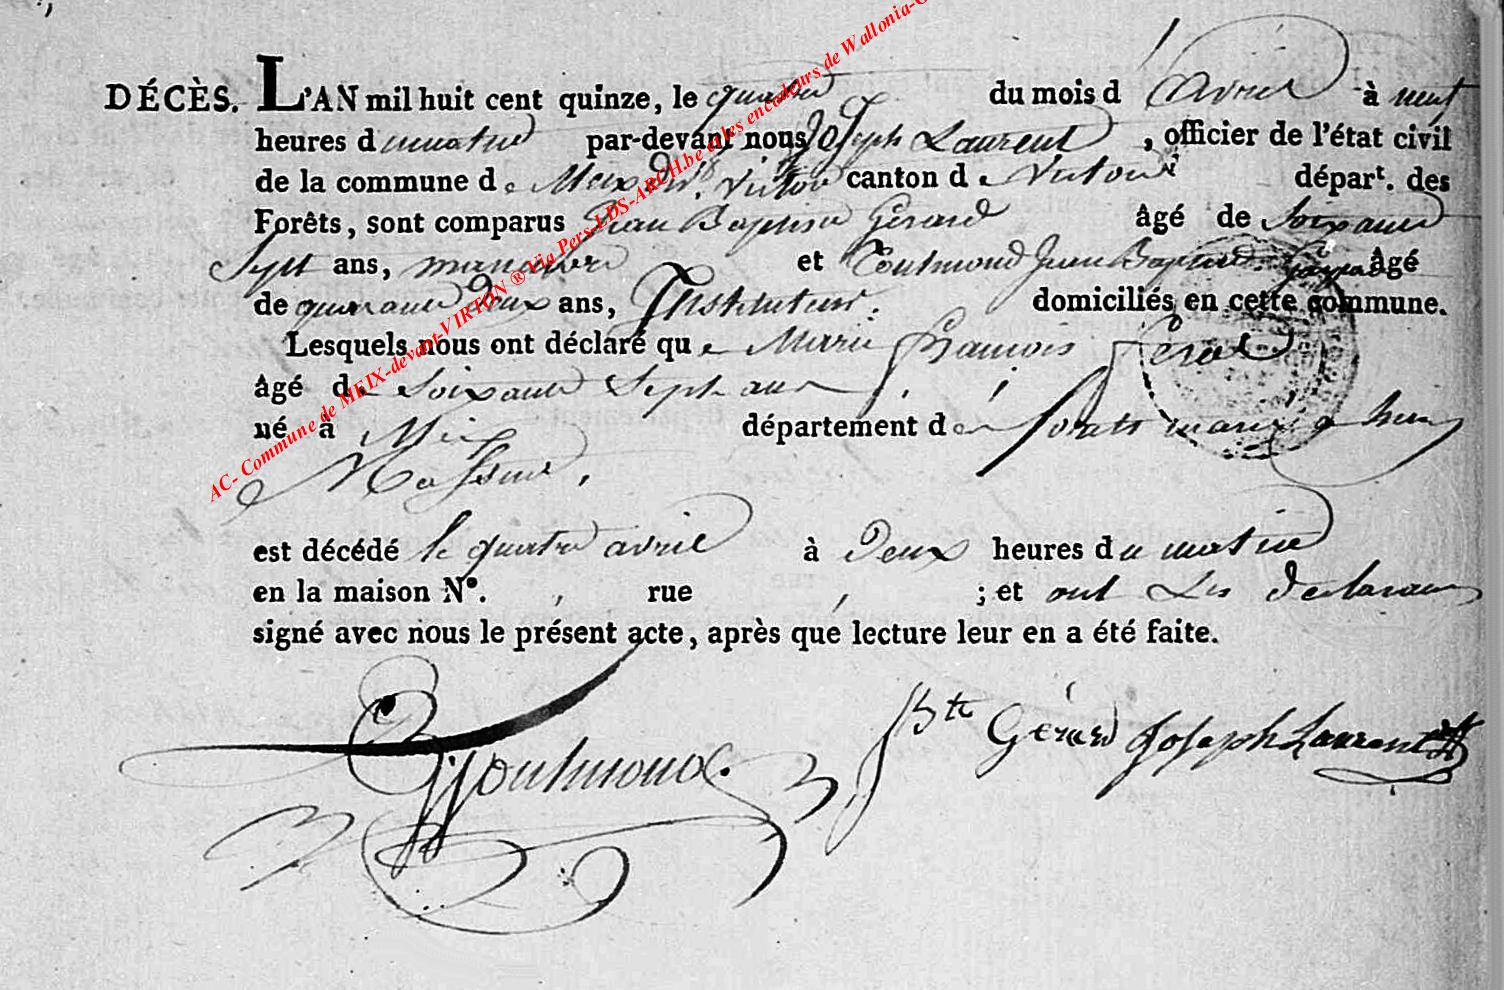 DÉCÈS. L'AN mil huit cent quinze, le quatre du mois d'avril à neuf
heures du matin par-devant nous Joseph Laurent, officier de l'état civil
de la commune de Meix dvt. Virton canton de Virton départ. des
Forêts, sont comparus Jean Baptiste Gérard âgé de Soixante
Sept ans, manœuvre et Toutmond Jean Baptiste âgé
de quarante deux ans, Instituteur. domiciliés en cette commune.
Lesquels nous ont déclaré que Marie François
âgé de Soixante Sept ans
né à Meix département des forêts
est décédé le quatre avril à Deux heures du matin
en la maison N°. , rue , ; et ont Les Declarans
signé avec nous le présent acte, après que lecture leur en a été faite.
JBte Gérard Joseph Laurent
Toutmond.
AC- Commune de MEIX-devant-VIRTON ® Via Pers-LDS-ARCH.be et les encodeurs de Wallonia-